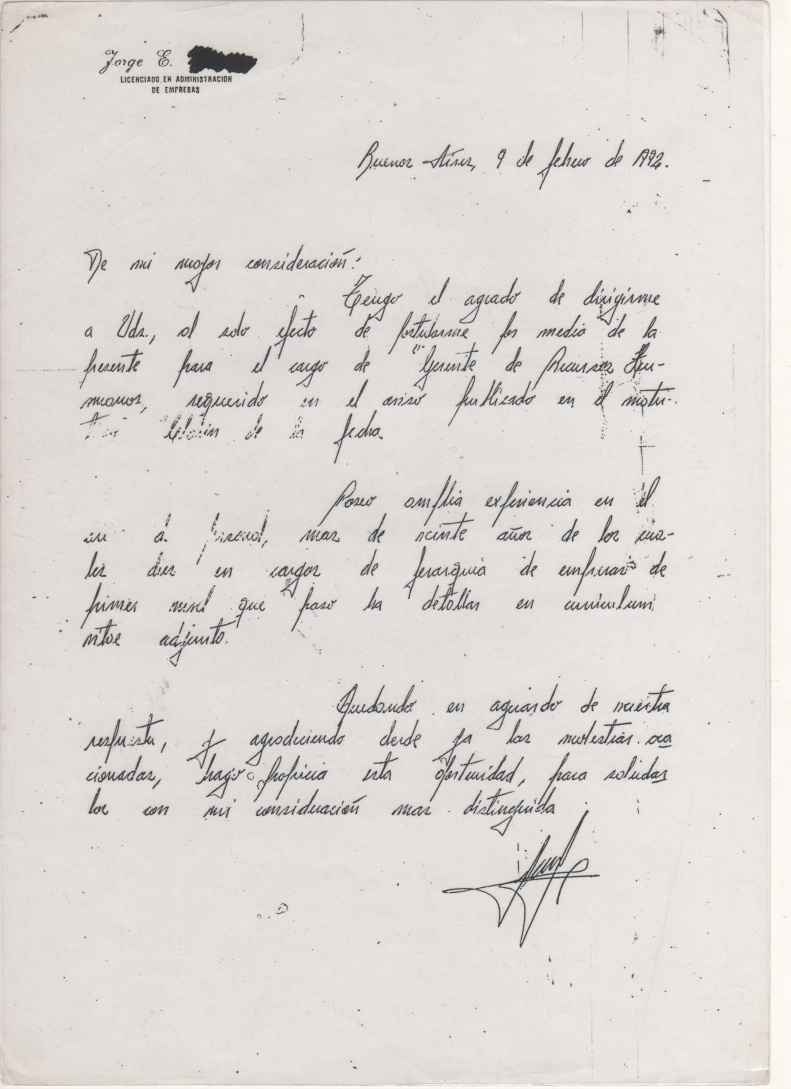 Jorge E.
LICENCIADO EN ADMINISTRACION
DE EMPRESAS
Buenos Aires, 9 de febrero de 1992.
De mi mayor consideración:
Tengo el agrado de dirigirme
a Uds., al solo efecto de postularme por medio de la
presente para el cargo de "Gerente de Recursos Hu-
manos, requerido en el aviso publicado en el matu-
Clarín de la fecha.
Poseo amplia experiencia en el
personal, mas de veinte años de los cua-
les diez en cargos de jerarquia de empresas de
primer nivel que paso ha detallar en curriculum
vitae adjunto.
Quedando en aguardo de vuestra
respuesta, y agradeciendo desde ya las molestias oca
cionadas, hago propicia esta oportunidad, para saludar
los con mi consideración mas distinguida